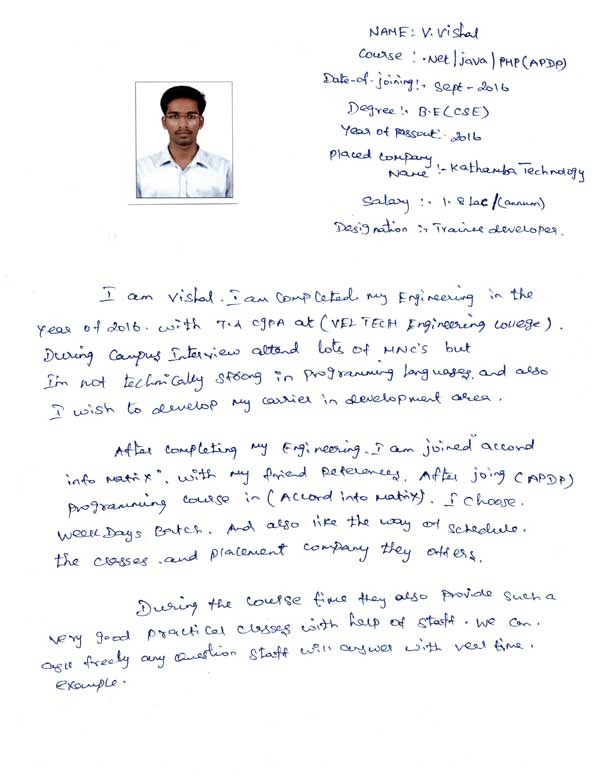 NAME: V. Vishal
Course : .Net/java/PHP(APDP)
Date-of-joining:- Sept-2016
Degree:- B.E(CSE)
Year of Passout:- 2016
Placed Company
Name :- Kathamba Technology
Salary :- 1.8 Lac/(annum)
Designation :- Trainee developer.
I am Vishal. I am completed my Engineering in the
year of 2016. with 7.4 cgpa at (VEL TECH Engineering college).
During Campus Interview attend lots of MNC's but
I'm not technically strong in programming languages. and also
I wish to develop my carrier in development area.
After completing my Engineering. I am joined "accord
info Matix". with my friend References. After joing (APDP)
Programming course in (Accord info Matix). I choose.
Week Days Batch. And also like the way of schedule.
the classes .and placement company they offers.
During the course time they also provide such a
very good practical classes with help of staff. we can.
ask freely any Question staff will answer with reel time.
example.